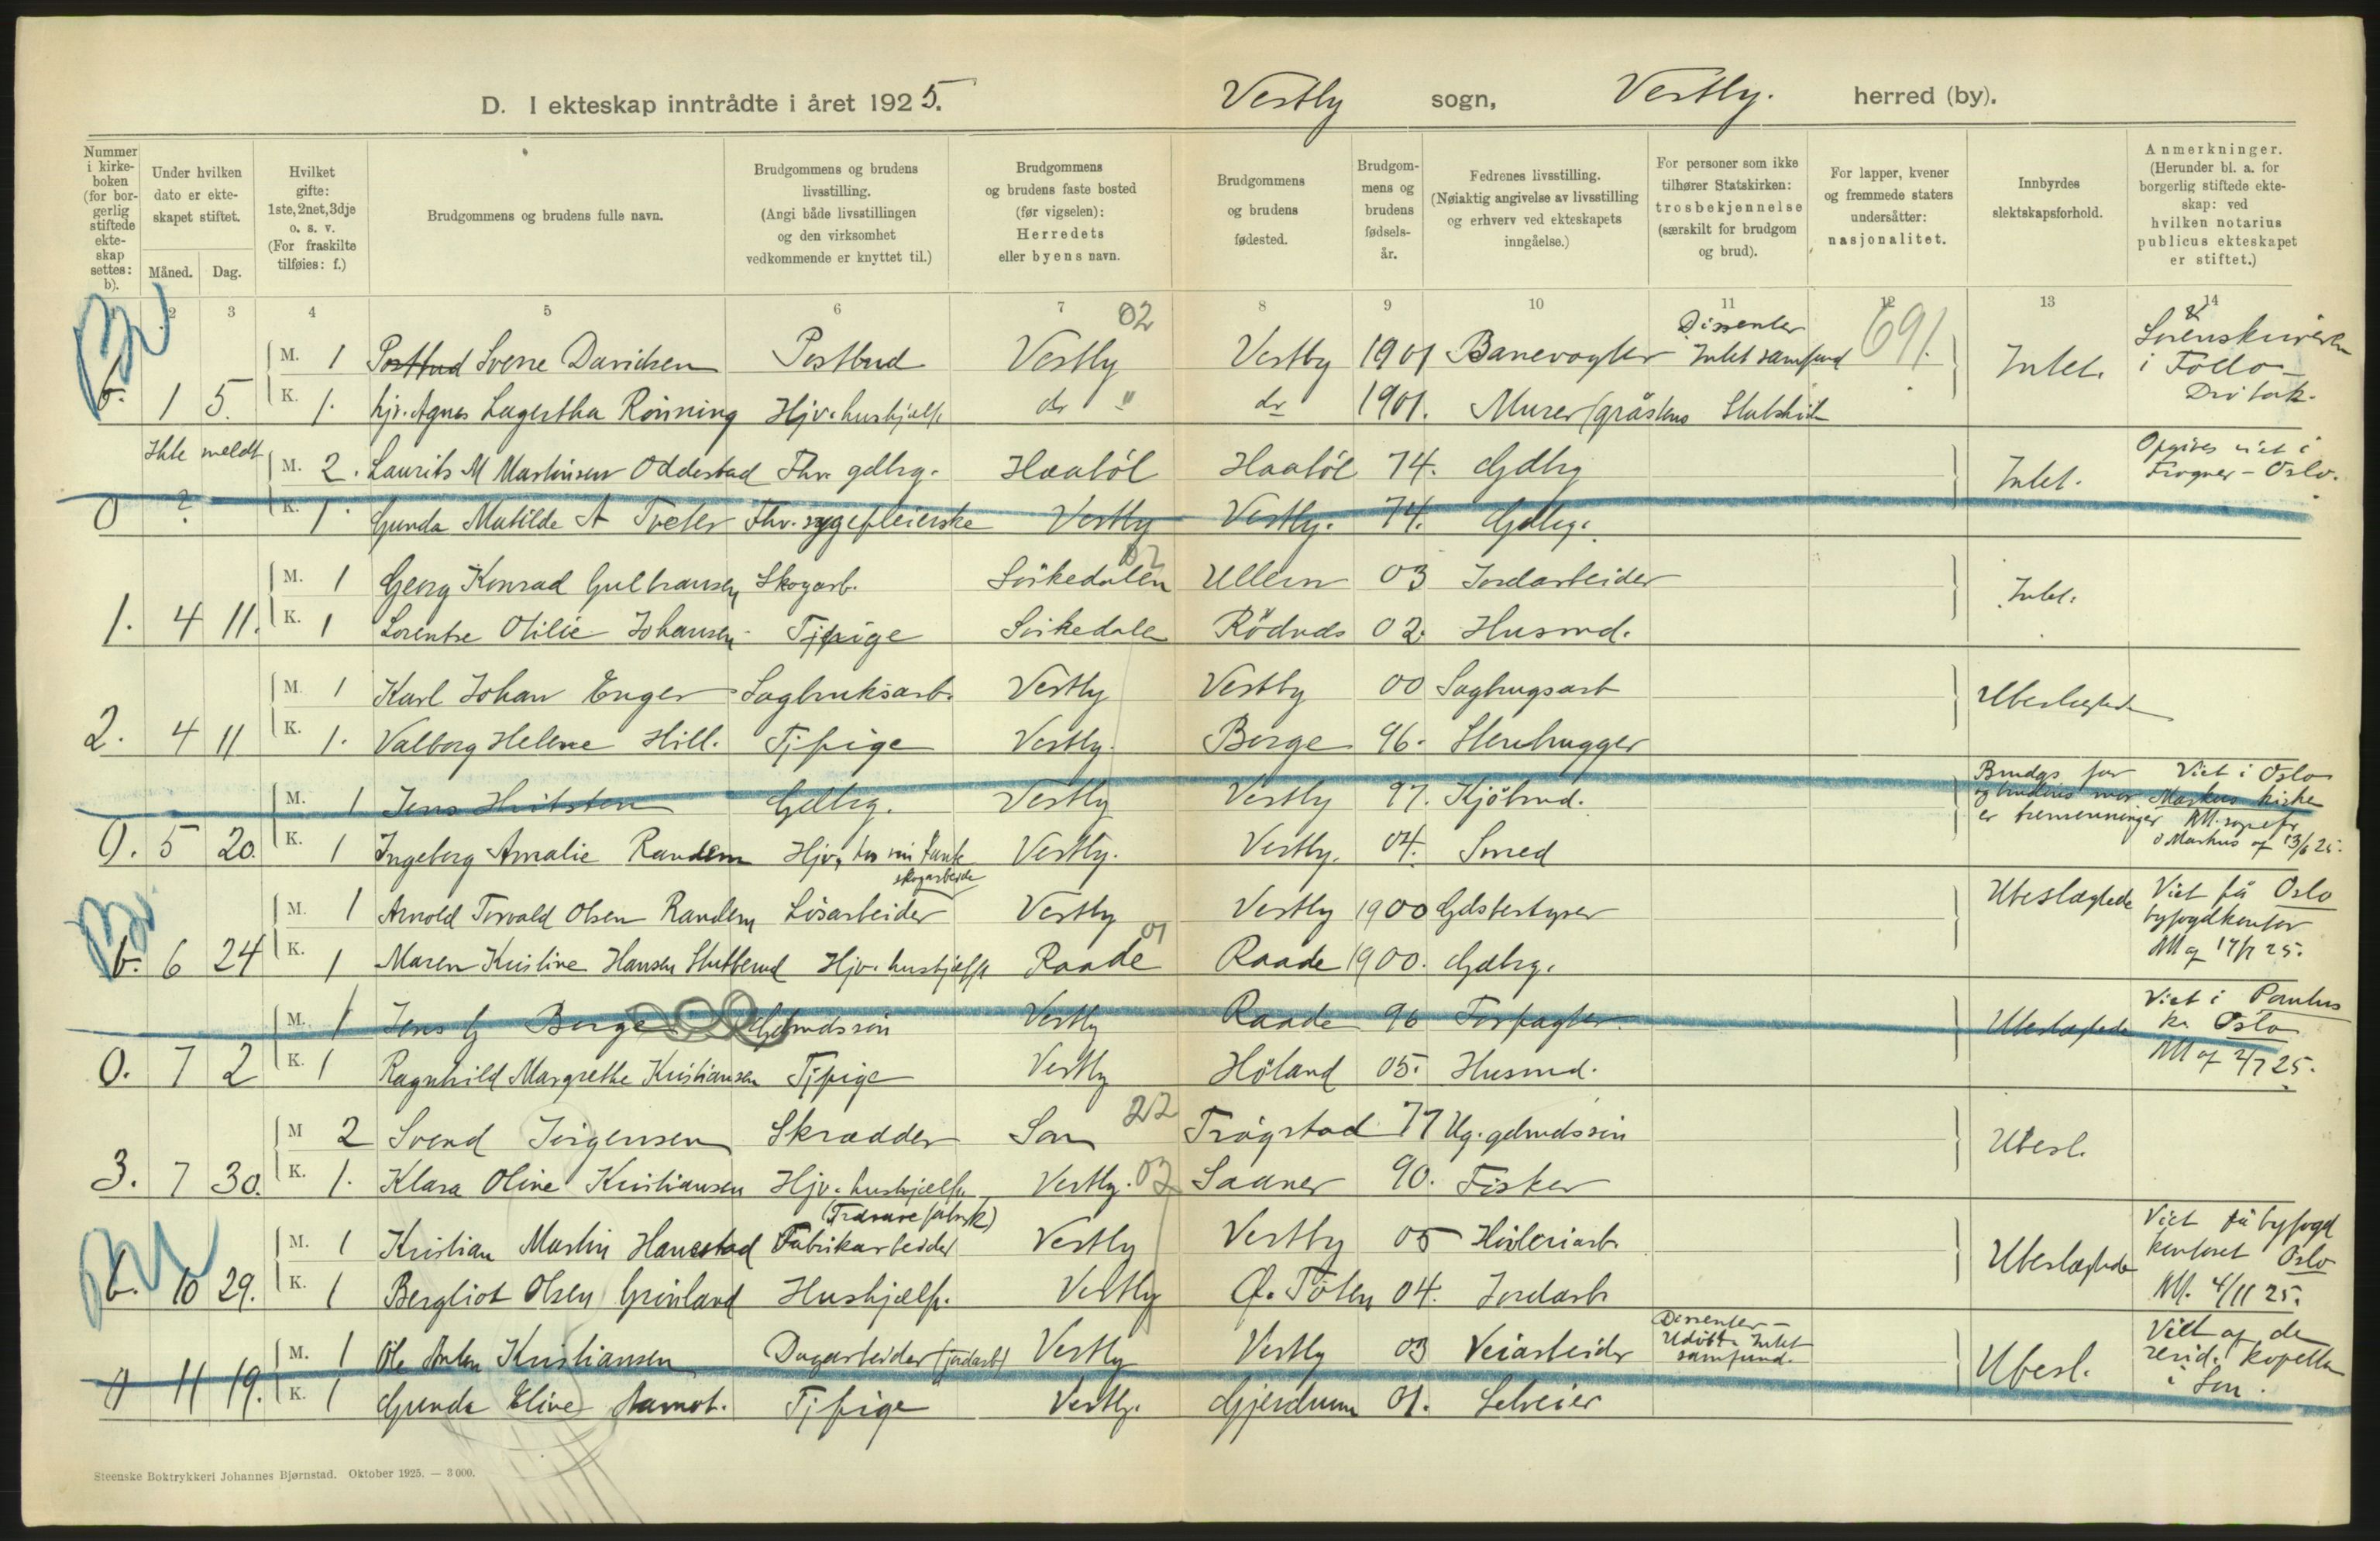 D. I ekteskap inntrådte i året 1925.
Vestby sogn, Vestby. herred (by).
Nummer i kirkeboken (for borgerlig stiftede ekteskap settes: b).
Under hvilken dato er ekteskapet stiftet.
Måned. Dag.
Hvilket gifte: 1ste, 2net, 3dje o. s. v. (For fraskilte tilføies: f.)
Brudgommens og brudens fulle navn.
Brudgommens og brudens livsstilling. (Angi både livsstillingen og den virksomhet vedkommende er knyttet til.)
Brudgommens og brudens faste bosted (før vigselen): Herredets eller byens navn.
Brudgommens og brudens fødested.
Brudgommens og brudens fødselsår.
Fedrenes livsstilling. (Nøiaktig angivelse av livsstilling og erhverv ved ekteskapets inngåelse.)
For personer som ikke tilhører Statskirken: trosbekjennelse (særskilt for brudgom og brud).
For lapper, kvener og fremmede staters undersåtter: nasjonalitet.
Innbyrdes slektskapsforhold.
Anmerkninger. (Herunder bl. a. for borgerlig stiftede ekteskap: ved hvilken notarius publicus ekteskapet er stiftet.)
1 2 3 4 5 6 7 8 9 10 11 12 13 14
02
M. 1 Postbud Sverre Davidsen Postbud Vestby Vestby 1901 Banevogter Dissenter Intet samfund 691. Intet. Sorenskriveren i Follo Drøbak.
b. 1 5. K. 1. hjv. Agnes Lagertha Rønning Hjv. hushjælp do " do 1901. Murer (gråstens Statskirk
Ikke meldt M. 2. Laurits M Martinsen Oddestad Fhv. gdbrg. Haabøl Haabøl 74. Gdbrg Intet. Opgives viet i Frogner - Oslo.
0 ? K. 1. Gunda Matilde A Tveter Fhv. sygepleierske Vestby Vestby. 74. Gdbrg.
02
M. 1 Georg Konrad Gulbransen Skogarb. Sørkedalen Ullern 03 Jordarbeider Intet.
1. 4 11. K. 1 Lorentse Otilie Johansen Tjpige Sørkedalen Rødnds 02. Husmd.
M. 1 Karl Johan Enger Sagbruksarb. Vestby Vestby 00 Sagbrugsarb Ubeslegtede
2. 4 11 K. 1. Valborg Helene Hill. Tjpige Vestby. Borge 96. Stenhugger
M. 1 Jens Hvitsten Gdbrg. Vestby Vestby 97. Kjøbmd. Brudgs far og brudens mor er tremenninger Viet i Oslo Markus kirke
0. 5 20. K. 1 Ingeborg Amalie Randem Hjv. hos sin tante Vestby. Vestby. 04. Smed Markus 13/6 25.
skogarbeide
M. 1 Arnold Torvald Olsen Randem Løsarbeider Vestby Vestby 1900 Gdsbestyrer Ubeslægtede Viet på Oslo byfogdkontor
01
b. 6 24 K. 1 Maren Kristine Hansen Stutterud Hjv. hushjælp Raade Raade 1900. Gdbrg. 25.
M. 1 Jens G Borge Gdmdssøn Vestby Raade 96 Forpagter. Ubeslægtede Viet i Paulus ki Oslo
0. 7 2 K. 1 Ragnhild Margrethe Kristiansen Tjpige Vestby Høland 05. Husmd. 2/7 25.
22
M 2 Svend Jørgensen Skrædder Son Trøgstad 77 Ug. gdmdssøn Ubesl.
3. 7 30. K. 1. Klara Oline Kristiansen Hjv. hushjælp Vestby. 03 Saaner 90. Fisker
(Trævarefabrik)
M. 1 Kristian Martin Hanestad Fabrikarbeider Vestby Vestby 05 Høvleriarb. Ubeslægtede Viet på byfogd kontoret Oslo
b. 10 29. K. 1 Bergliot Olsen Grønland Hushjælp. Vestby Ø. Toten 04. Jordarb 4/11 25.
M. 1 Ole Anton Kristiansen Dagarbeider (jordarb) Vestby Vestby 03 Veiarbeider Dissenter - Udøbt. Intet samfund. Ubesl. Viet af den resid. kapellan i Son.
0 11 19. K. 1 Gunda Eline Aamot. Tjpige Vestby. Gjerdrum 01. Selveier
Steenske Boktrykkeri Johannes Bjørnstad. Oktober 1925. — 3 000.